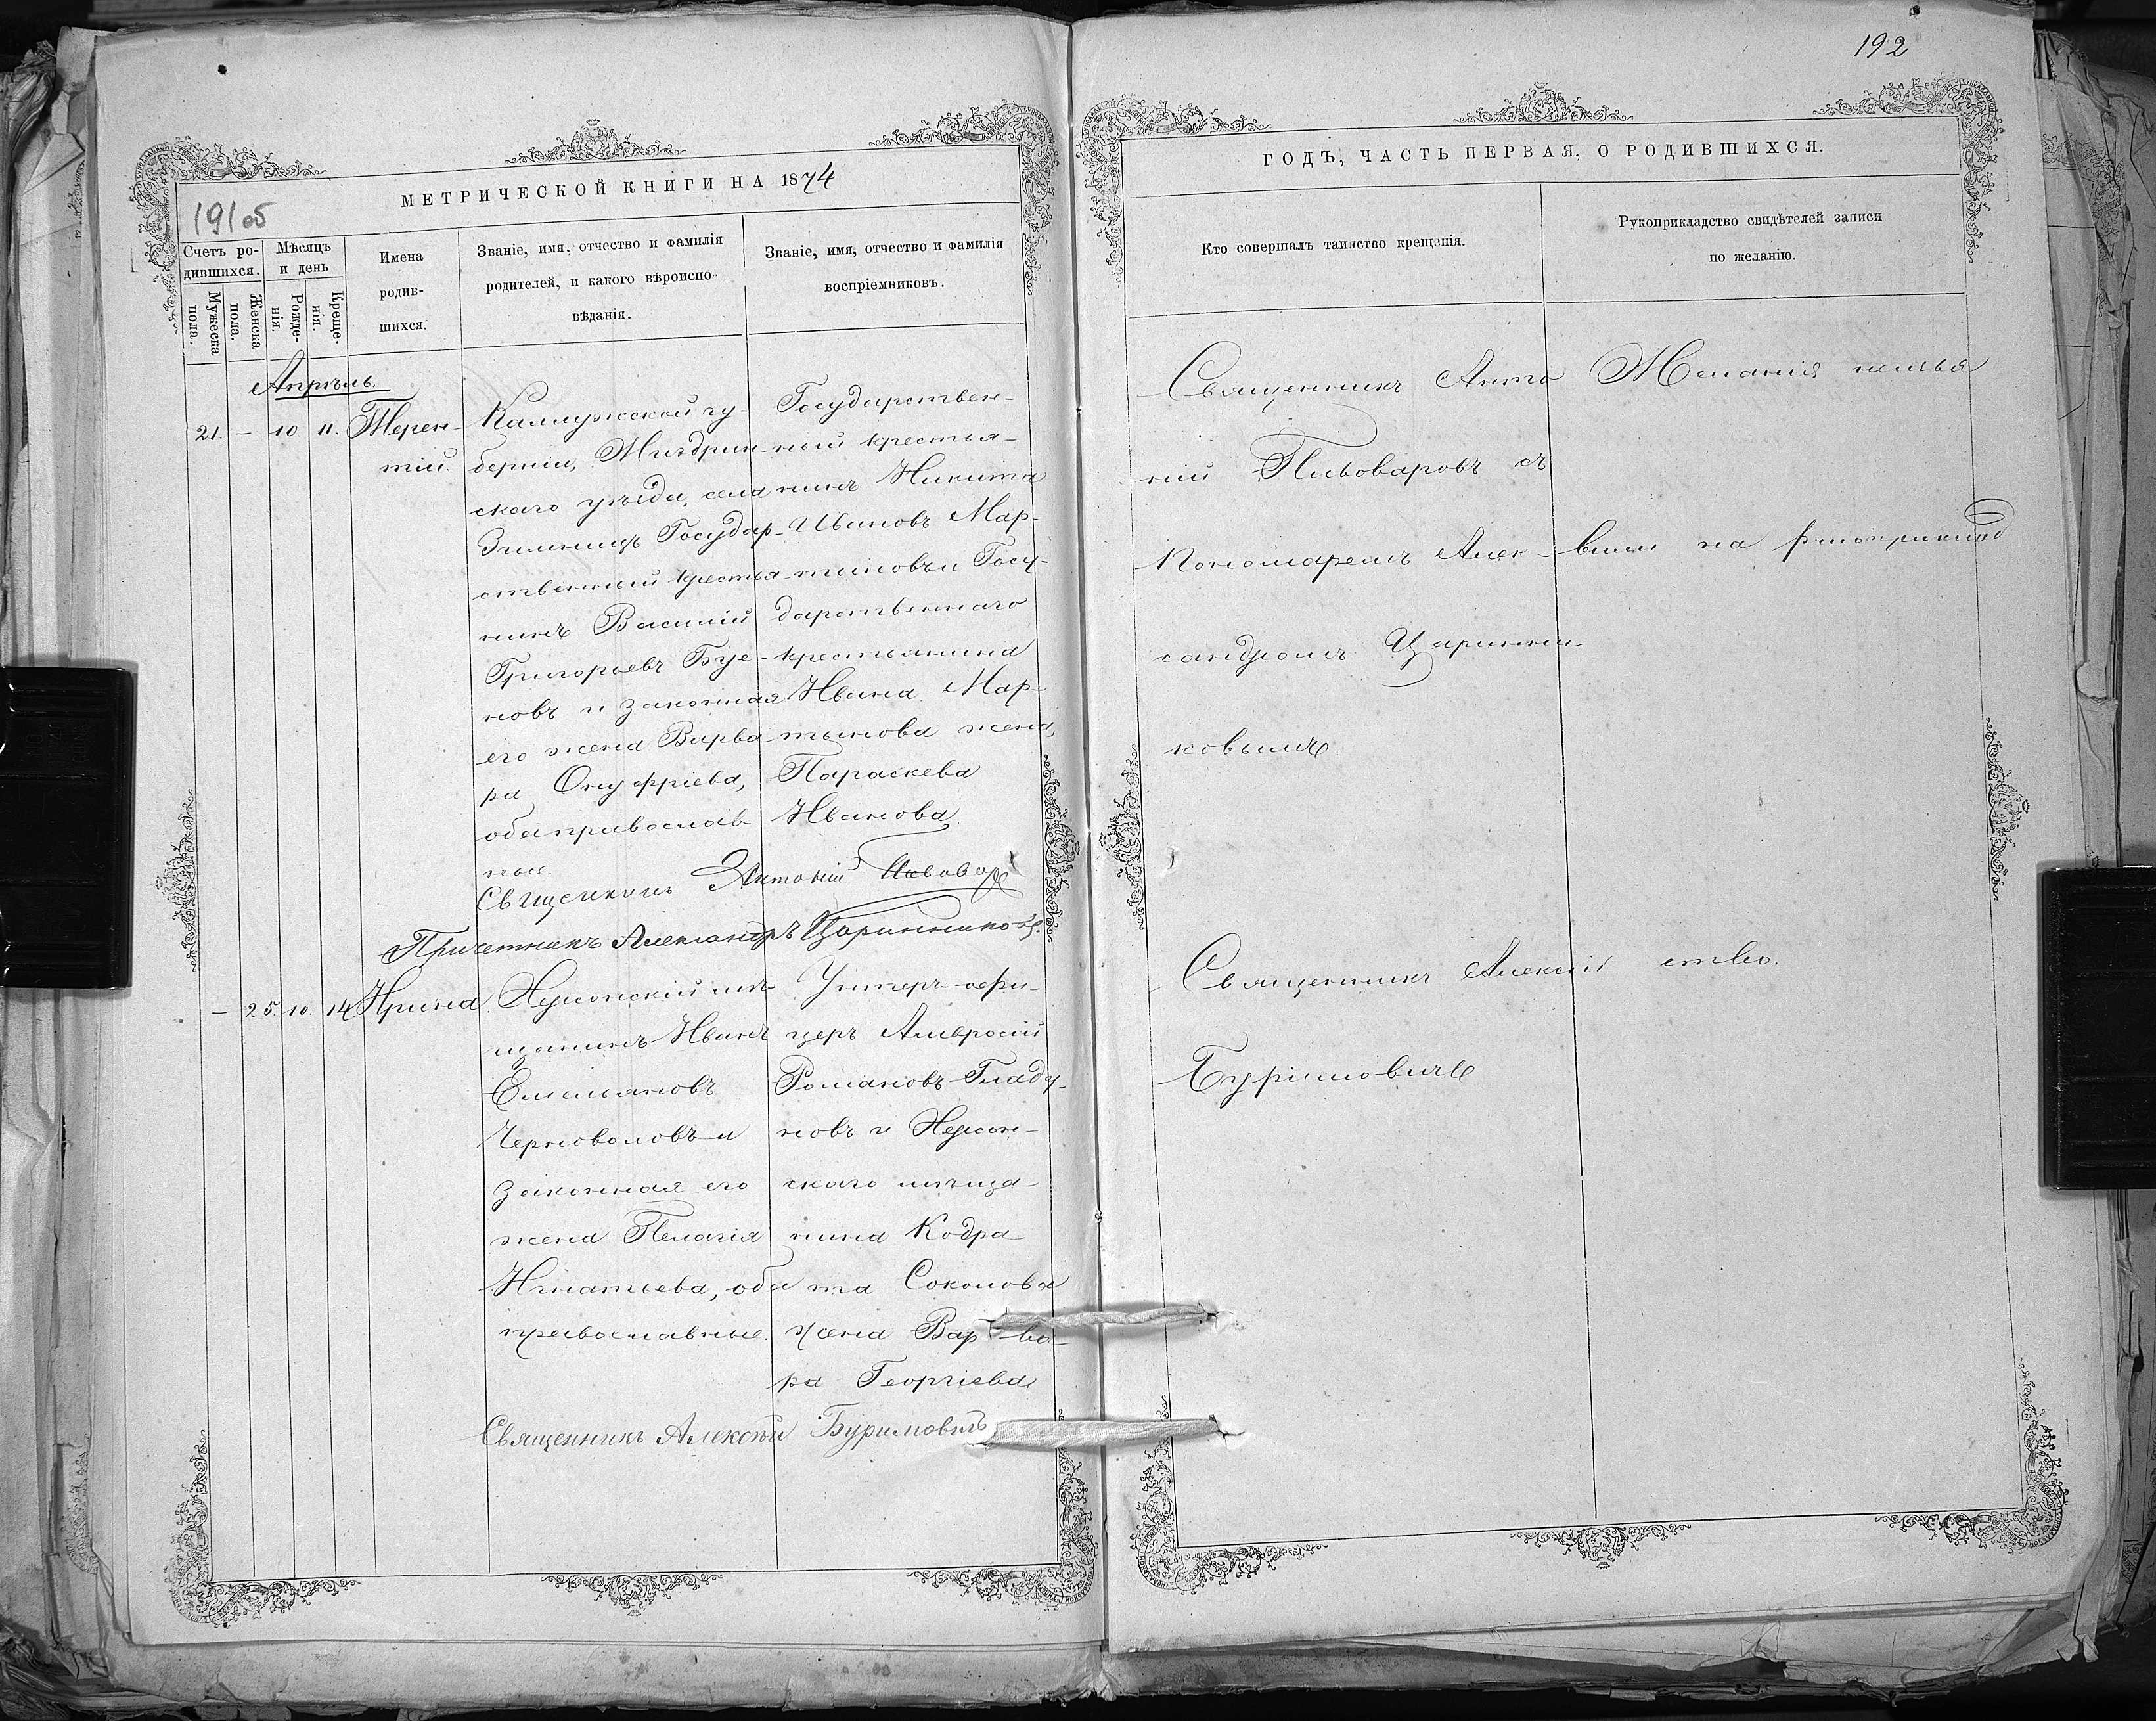 192
МЕТРИЧЕСКОЙ КНИГИ НА 1874
191об
Счетъ ро-
дившихся.
Мужеска
пола.
Женска
пола.
Мѣсяцъ
и день
Рожде-
нія.
Креще-
нія.
Имена
родив-
шихся.
Званіе, имя, отчество и фамилія
родителей, и какого вѣроиспо-
вѣданія.
Званіе, имя, отчество и фамилія
воспріемниковъ.
Апрѣль.
21. — 10 11. Терен-
тій.
Калужской гу-
берніи, Мигдрин-
скаго уѣзда, села
Государ-
ственный крестья-
нинъ Василій
Григорьевъ Буе-
новъ и законная
его жена Варва-
ра Онуфріева,
оба православ
ные.
Государствен-
ный крестья-
нинъ Никита
Ивановъ Мар-
тыновъ и Госу-
дарственнаго
крестьянина
Ивана Мар-
тынова жена,
Параскева
Иванова.
Священникъ Антоній Пивовар
Причетникъ Александръ Царинниковъ.
— 25. 10. 14. Ирина.
Херсонскій мѣ-
щанинъ Иванъ
Емельяновъ
Черноволовъ и
законная его
жена Пелагія
Игнатьева, оба
православные.
Унтеръ-офи-
церъ Амвросій
Романовъ Гладу-
новъ и Херсон-
скаго мѣща-
нина Кодра-
та Соколова
жена Варва-
ра Георгіева
Священникъ Алексѣй Буримовичъ
ГОДЪ, ЧАСТЬ ПЕРВАЯ, О РОДИВШИХСЯ.
Кто совершалъ таинство крещенія.
Рукоприкладство свидѣтелей записи
по желанію.
Священникъ Анто
ній Пивоваровъ съ
Пономаремъ Алек-
сандромъ Царинни-
ковымъ.
Священникъ Алексій
Буримовичъ
Желанія неизъя
вили на рукоприклад
ство.